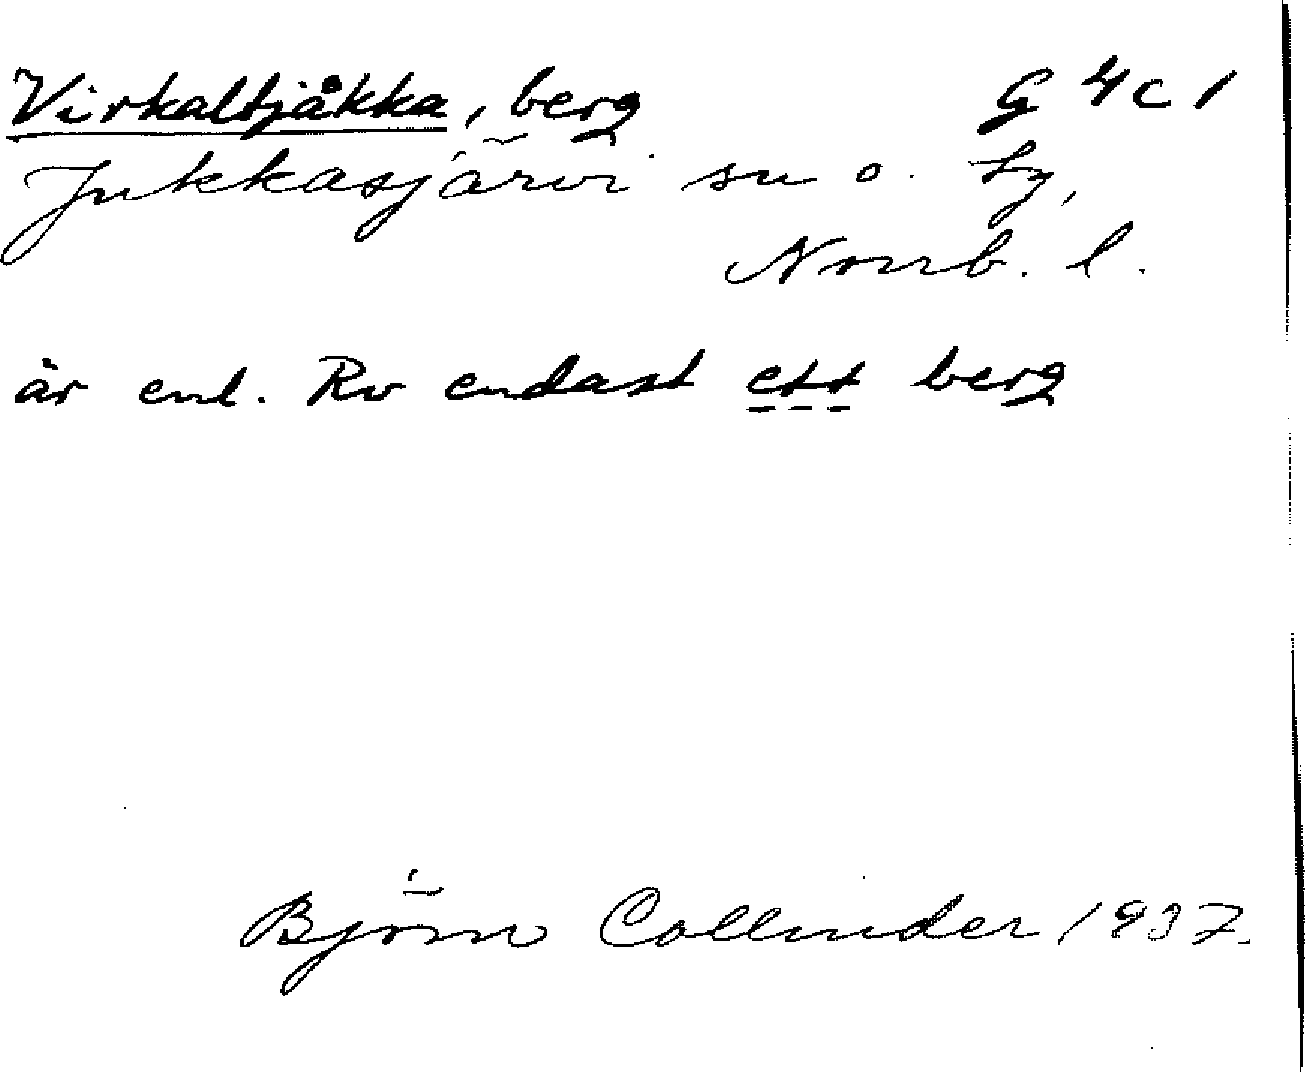 Virkaltjåkka, berg G 4 c 1
Jukkasjärvi sn o. ty,
Norrb. l.
är enl. Rv endast ett berg
Björn Collinder 1937.